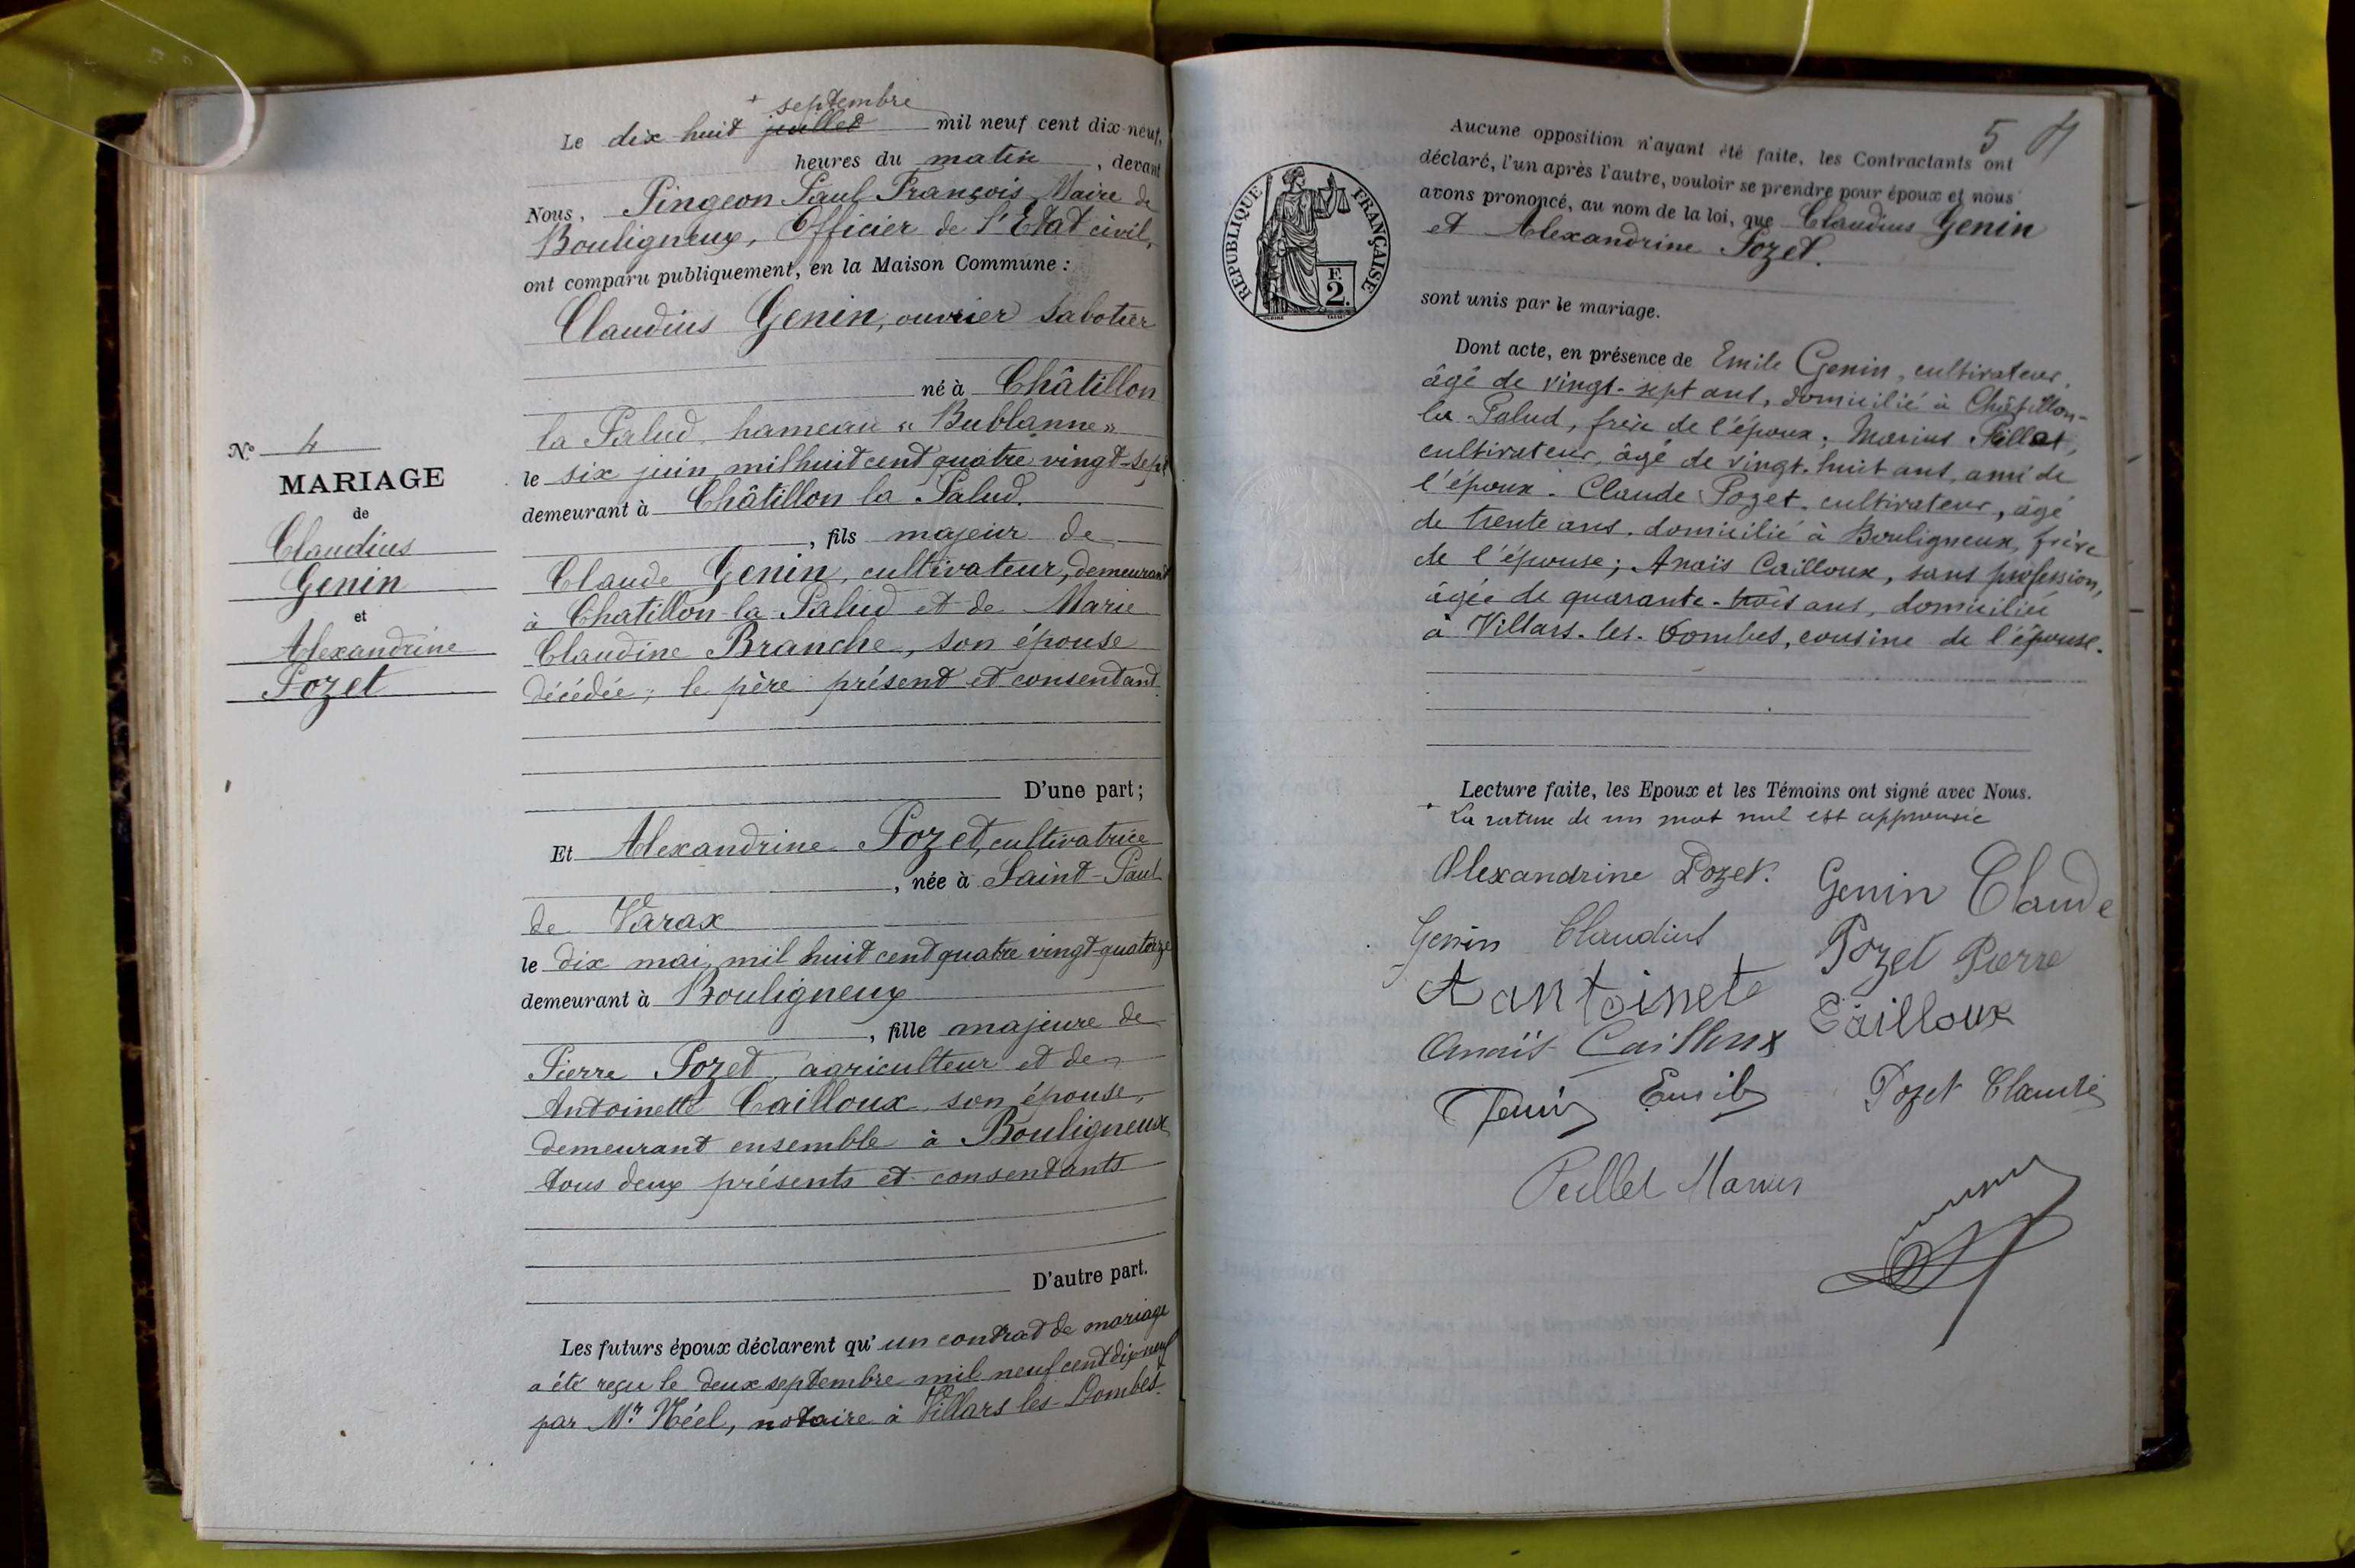 + septembre
Le dix huit juillet mil neuf cent dix-neuf,
heures du matin, devant
Nous, Pingeon Paul François, Maire de
Bouligneux, Officier de l'Etat civil,
ont comparu publiquement, en la Maison Commune :
Claudius Genin, ouvrier sabotier
né à Châtillon
la Palud, hameau « Bublanne »
le six juin mil huit cent quatre vingt-sept
demeurant à Châtillon la Palud.
, fils majeur de
Claude Genin, cultivateur, demeurant
à Chatillon-la-Palud et de Marie
Claudine Branche, son épouse
décédée; le père présent et consentant.
D'une part;
Et Alexandrine Pozet, cultivatrice
, née à Saint-Paul
de Varax
le dix mai mil huit cent quatre vingt-quatorze
demeurant à Bouligneux
, fille majeure de
Pierre Pozet, agriculteur et de
Antoinette Cailloux son épouse,
demeurant ensemble à Bouligneux
tous deux présents et consentants
D'autre part.
Les futurs époux déclarent qu'un contrat de mariage
a été reçu le deux septembre mil neuf cent dix-neuf
par Mr Néel, notaire à Villars les-Dombes.
N° 4
MARIAGE
de
Claudius
Genin
et
Alexandrine
Pozet
5
Aucune opposition n'ayant été faite, les Contractants ont
déclaré, l'un après l'autre, vouloir se prendre pour époux et nous
avons prononcé, au nom de la loi, que Claudius Genin
et Alexandrine Pozet.
sont unis par le mariage.
RÉPUBLIQUE FRANÇAISE
F.
2.
Dont acte, en présence de Emile Genin, cultivateur,
âgé de vingt-sept ans, domicilié à Châtillon-
la-Palud, frère de l'époux; Marius Pillet,
cultivateur, âgé de vingt-huit ans, ami de
l'époux. Claude Pozet, cultivateur, âgé
de trente ans, domicilié à Bouligneux, frère
de l'épouse; Anais Cailloux, sans profession,
âgée de quarante-trois ans, domiciliée
à Villars-les-Dombes, cousine de l'épouse.
Lecture faite, les Epoux et les Témoins ont signé avec Nous.
+ La rature de un mot nul est approuvée
Alexandrine Pozet.
Genin Claude
Genin Claudius
Pozet Pierre
A antoinete
Cailloux
Anaïs Cailloux
Genin Emile
Pozet Claude
Pillet Marius